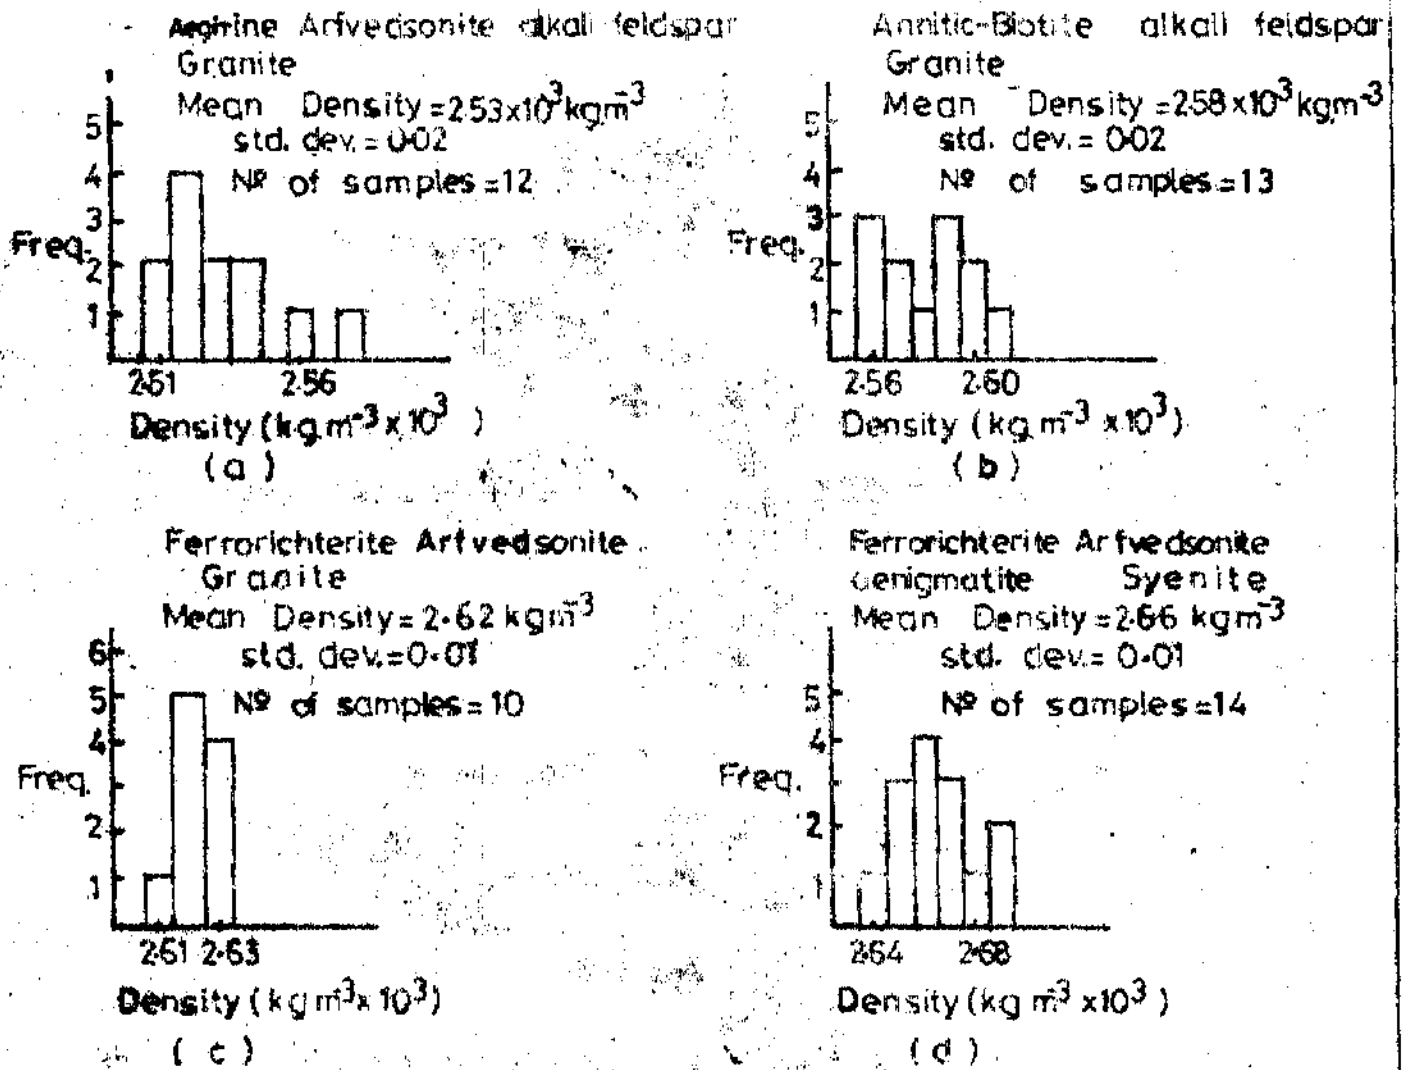 Aegirine Arfvedsonite alkali feldspar
Granite
Mean Density = 2.53x10³kgm⁻³
std. dev. = 0.02
Nº of samples = 12
5
4
3
Freq.
2
1
2.51 2.56
Density (kg.m⁻³ x 10³ )
( a )
Annitic-Biotite alkali feldspar
Granite
Mean Density = 2.58x10³kgm⁻³
std. dev. = 0.02
Nº of samples = 13
5
4
3
Freq.
2
1
2.56 2.60
Density (kg m⁻³ x10³)
( b )
Ferrorichterite Arfvedsonite
Granite
Mean Density = 2.62 kgm⁻³
std. dev. = 0.01
Nº of samples = 10
6
5
4
Freq.
2
1
2.61 2.63
Density (kg m⁻³x 10³)
( c )
Ferrorichterite Arfvedsonite
aenigmatite Syenite
Mean Density = 2.66 kgm⁻³
std. dev. = 0.01
Nº of samples = 14
5
4
Freq.
2
1
2.64 2.68
Density (kg m⁻³ x10³ )
( d )